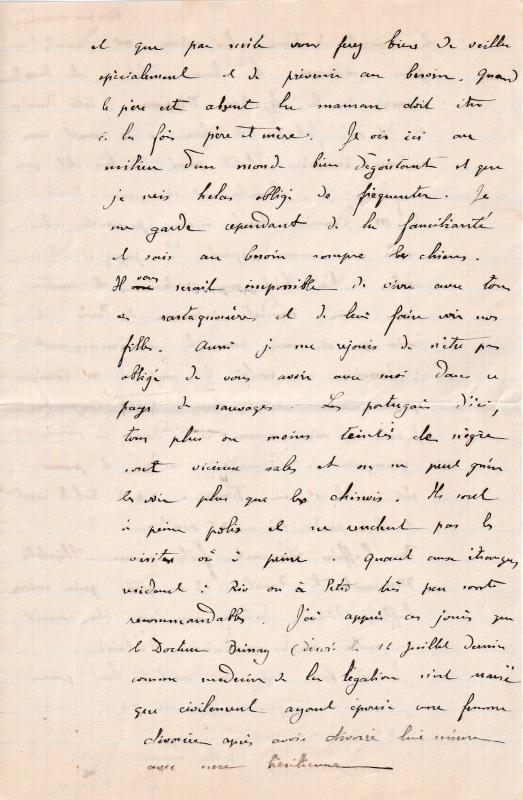 et que par suite vous ferez bien de veiller
spécialement et de prévenir au besoin. Quand
le père est absent la maman doit être
à la fois père et mère. Je vis ici au
milieu d'un monde bien dégoutant et que
je suis helas obligé de fréquenter. Je
me garde cependant de la familiarité
et sais au besoin rompre les chiens.
Il vous serait impossible de vivre avec tous
ces rastaquouères et de leur faire voir nos
filles. Aussi je me rejouis de n'être pas
obligé de vous avoir avec moi dans ce
pays de sauvages. Les portugais d'ici,
tous plus ou moins teintés de nègre
sont vicieux sales et on ne peut guère
les voir plus que les chinois. Ils sont
à peine polis et ne rendent pas les
visites où à peine. Quant aux étrangers
résidant à Rio ou à Petro très peu sont
recommandables. J'ai appris ces jours que
le Docteur (décoré le 14 Juillet dernier
comme medecin de la légation n'est marié
que civilement ayant épousé une femme
divorcée après avoir divorcé lui même
avec une brésilienne